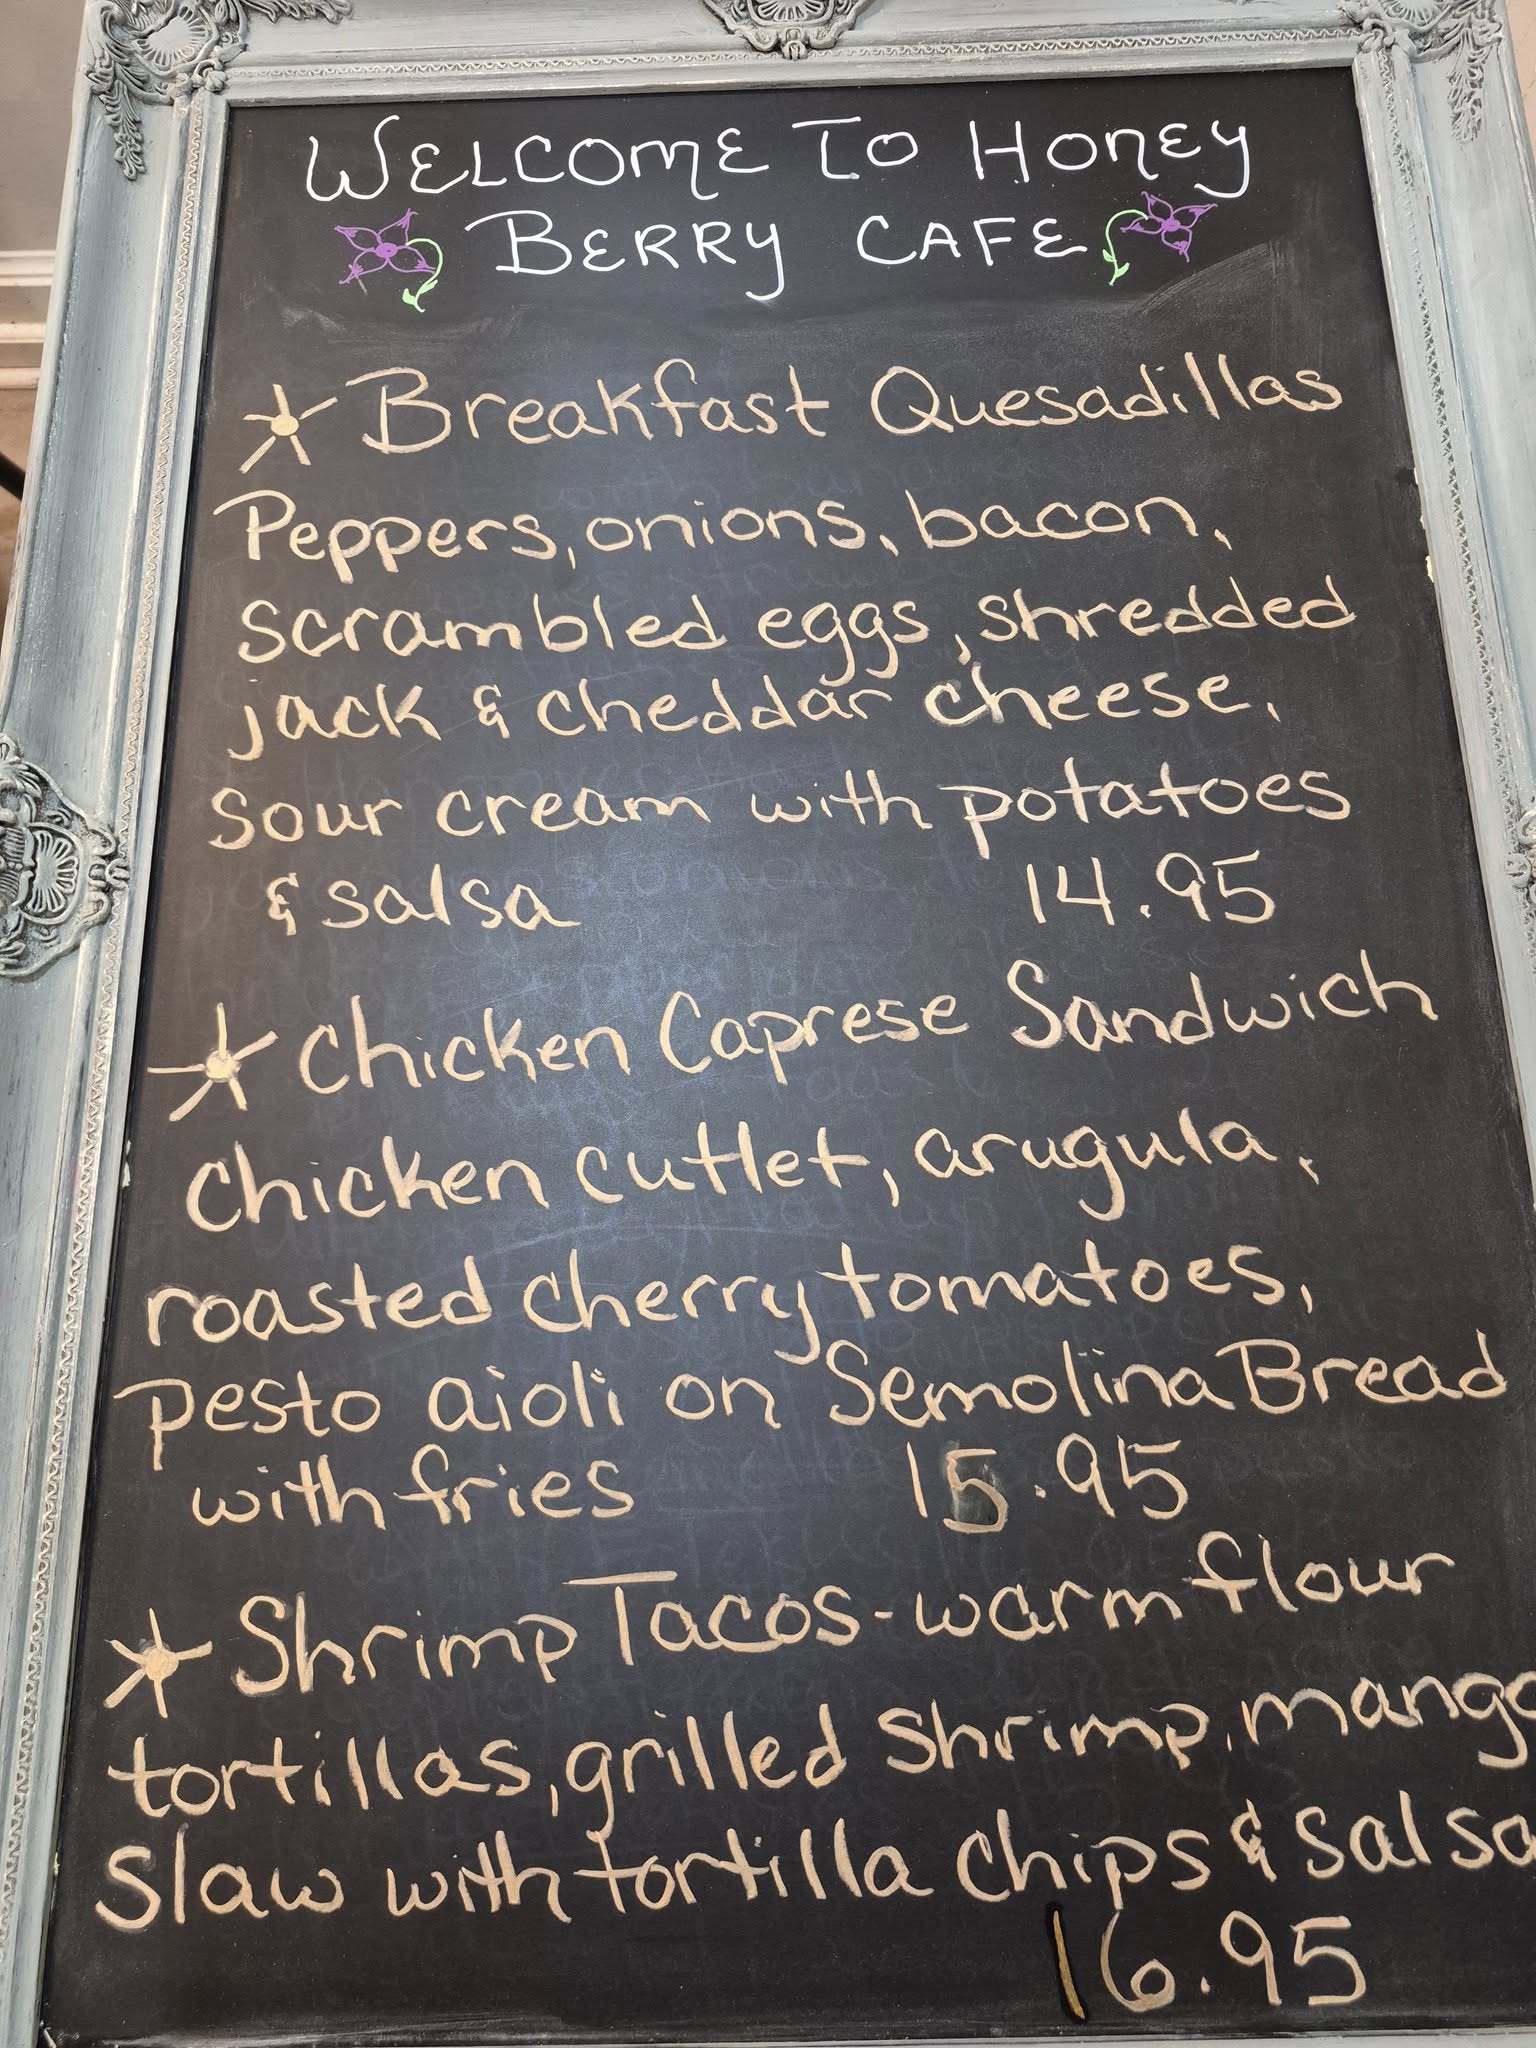 WELCOME TO HONEY
BERRY CAFE
Breakfast Quesadillas
Peppers, onions, bacon,
scrambled eggs, shredded
jack & cheddar cheese,
sour cream with potatoes
& salsa 14.95
Chicken Caprese Sandwich
Chicken cutlet, arugula,
roasted cherry tomatoes,
pesto aioli on Semolina Bread
with fries 15.95
Shrimp Tacos - warm flour
tortillas, grilled shrimp, mango
slaw with tortilla chips & salsa
16.95